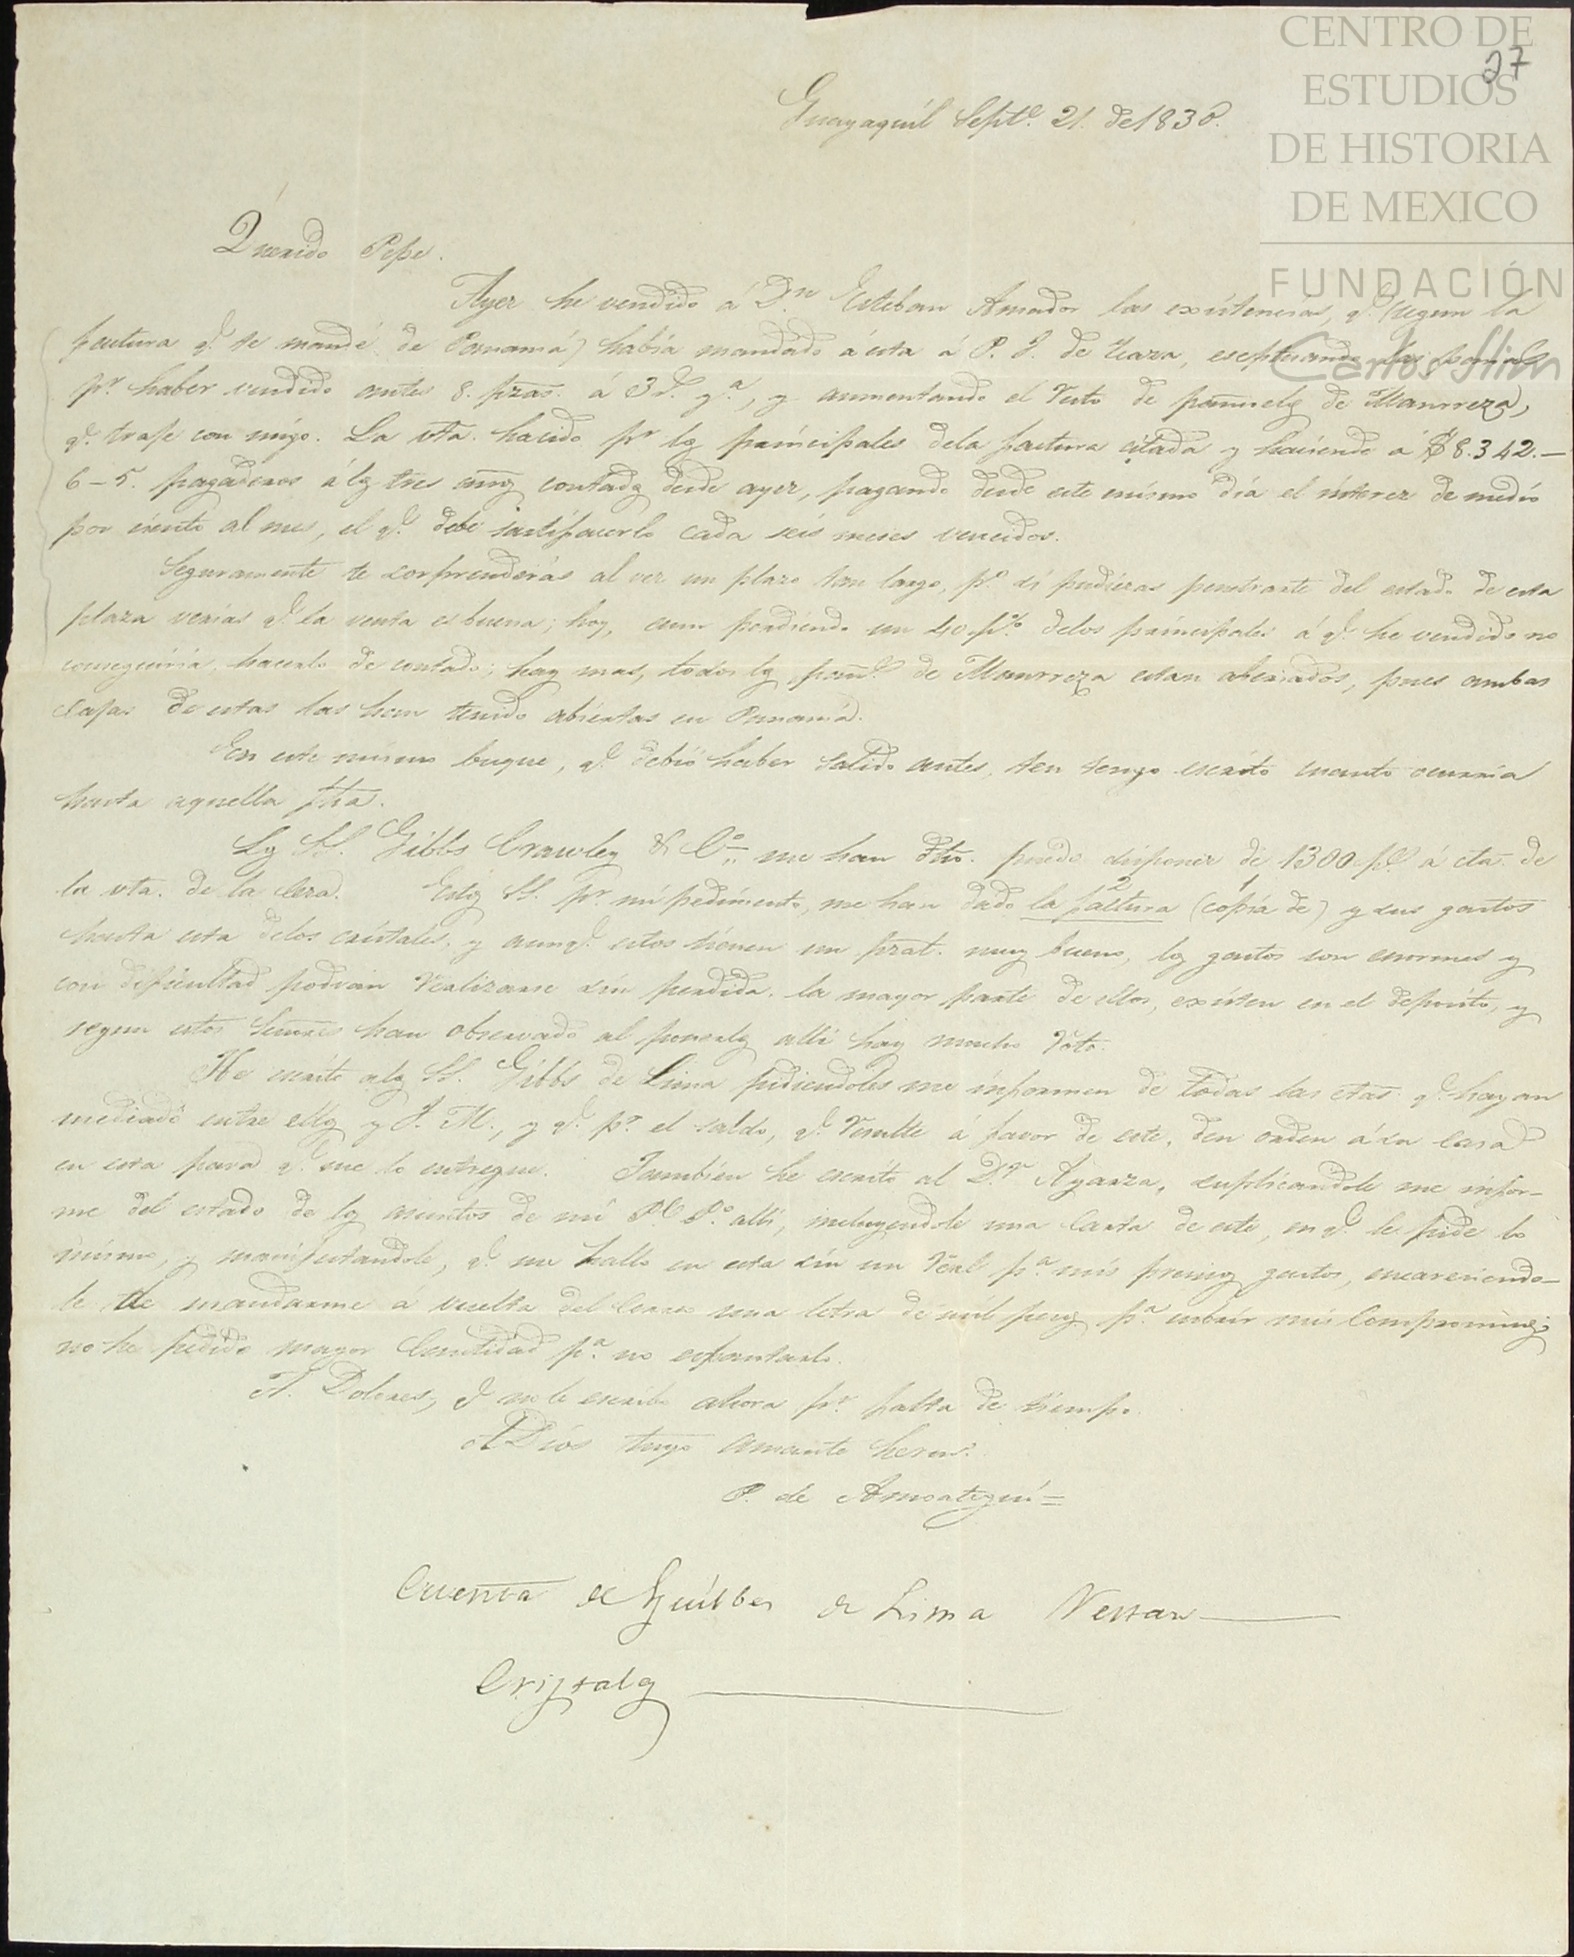 CENTRO DE
ESTUDIOS
DE HISTORIA
DE MEXICO
FUNDACIÓN
Carlos Slim
27
Guayaquíl Septe. 21. de 1830.
Querido Pepe.
Ayer he vendido á Dn. Esteban Amador las exístencias, q.e (segun la
factura q.e te mandé de Panamá) había mandado á esta á P. J. de Icaza, eseptuando las
pr. haber vendido antes 8. pzas. á 3 y a, y aumentando el resto de pañuelos de Manrreza,
q.e traje con mígo. La vta. ha sido pr. los principales dela factura citada y haciende á $8.342.-
6-5. pagaderos á los tres años contados desde ayer, pagando desde este mísmo día el ínteres de medio
por ciento al mes, el q.e debe satisfacerlo cada seis meses vencidos.
Seguramente te sorprenderás al ver un plazo tan largo, pr. si pudíeras penetrarte del estado de esta
plaza verias q.e la venta es buena; hoy, aun perdiendo un 40 p% delos príncipales á q.e he vendido no
conseguiría hacerlo de contado; hay mas, todos los pañ.s de Manrreza estan aberiados, pues ambas
cajas de estas las han tenido abiertas en Panamá.
En este mísmo buque, q.e debió haber salido antes, ten tengo escrito cuanto ocurria
hasta aquella fha.
Los SS. Gibbs Crawley & Co. me han dho. puedo disponer de 1300 ps. á cta. de
la vta. de la Cera. Estos SS. pr. mí pedimento, me han dado la factura (copía de) y sus gastos
hasta esta delos cristales, y aunq.e estos tienen un pral. muy bueno, los gastos son enormes y
con dificultad podran realizarse sín perdida. la mayor parte de ellos, exísten en el deposito, y
segun estos Señores han observado al ponerlos allí hay mucho roto.
He escrito alos SS. Gibbs de Lima pidiendoles me ínformen de todas las ctas. q.e hayan
mediado entre ellos y J. M., y q.e pr. el saldo, q.e resulte á favor de este, den orden á su Casa
en esta para q.e me lo entregue. Tambíen he escrito al Dr. Ayarza, suplicandole me infor-
me del estado de los asuntos de mí Pe. Po. allí, incluyendole una Carta de este, en q.e le pide lo
mismo, y manifestandole, q.e me hallo en esta sín un real pa. mís presisos gastos, encareciendo-
le de mandarme á vuelta del Correo una letra de mil pesos pa. cubrír mis Compromisos;
no he pedido mayor Cantidad pa. no espantarlo.
A. Dolores, q.e no le escribo ahora pr. falta de tiempo.
A Dios tuyo amante herm.o
P. de Amoategui=
Cuenta de Guibbes de Lima Nessan
Cristalos